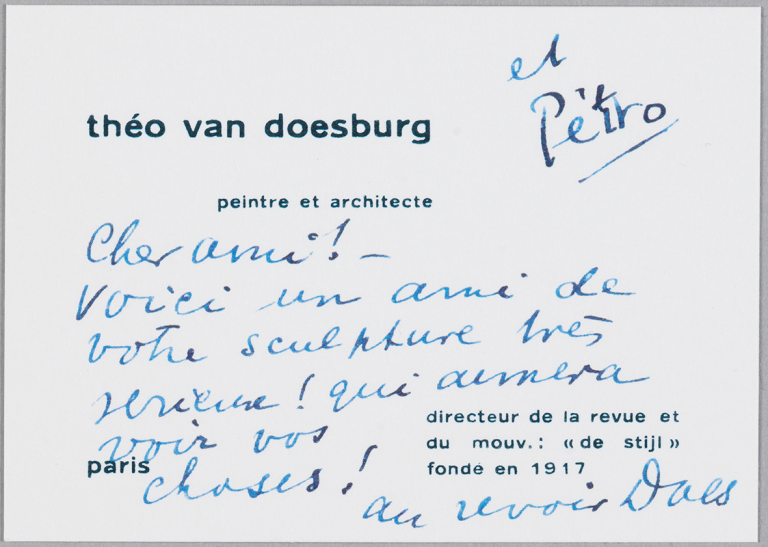 et
Pétro
théo van doesburg
peintre et architecte
Cher ami! –
Voici un ami de
votre sculpture très
serieux! qui aimera
voir vos
choses!
au revoir Does
directeur de la revue et
du mouv.: «de stijl»
fondé en 1917
paris